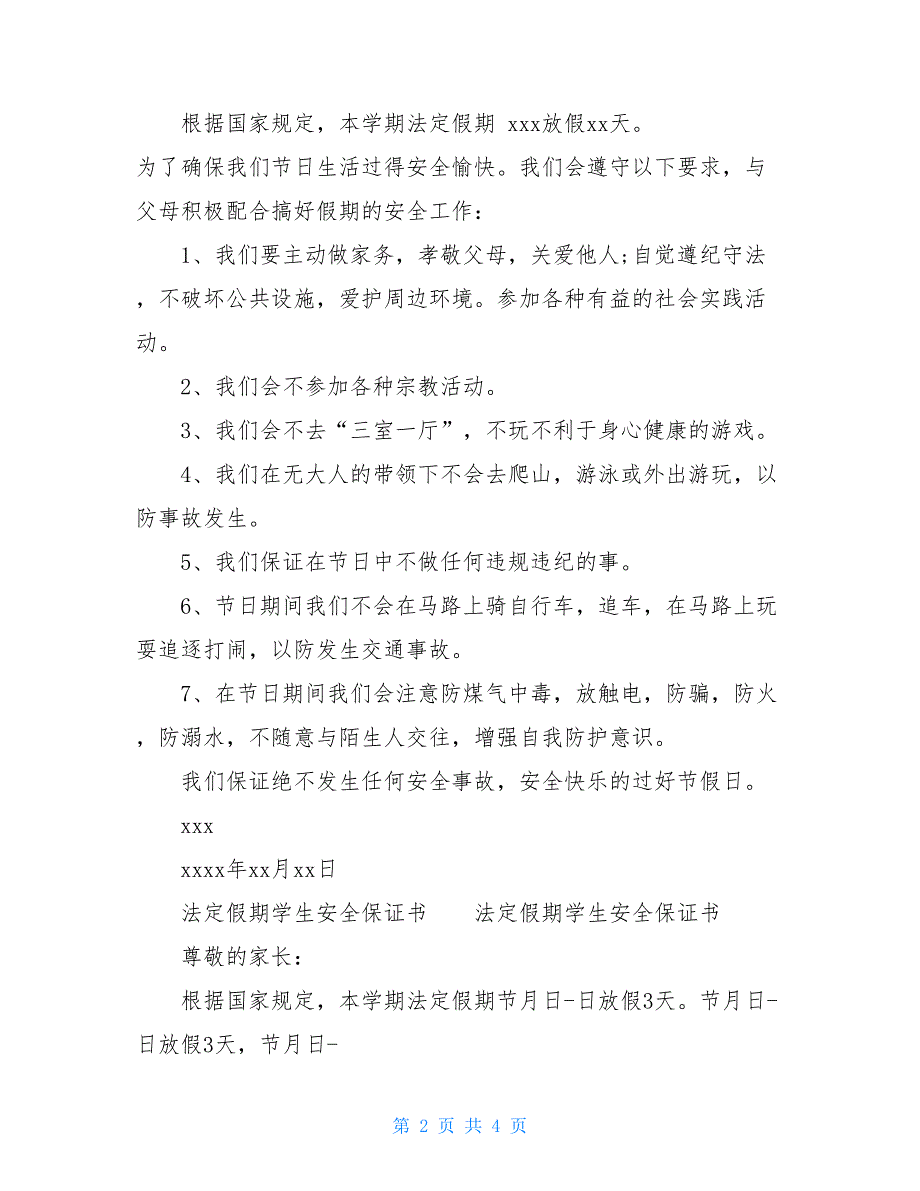 根据国家规定，本学期法定假期 xxx放假xx天。
为了确保我们节日生活过得安全愉快。我们会遵守以下要求，与
父母积极配合搞好假期的安全工作：
1、我们要主动做家务，孝敬父母，关爱他人;自觉遵纪守法
，不破坏公共设施，爱护周边环境。参加各种有益的社会实践活
动。
2、我们会不参加各种宗教活动。
3、我们会不去“三室一厅”，不玩不利于身心健康的游戏。
4、我们在无大人的带领下不会去爬山，游泳或外出游玩，以
防事故发生。
5、我们保证在节日中不做任何违规违纪的事。
6、节日期间我们不会在马路上骑自行车，追车，在马路上玩
耍追逐打闹，以防发生交通事故。
7、在节日期间我们会注意防煤气中毒，放触电，防骗，防火
，防溺水，不随意与陌生人交往，增强自我防护意识。
我们保证绝不发生任何安全事故，安全快乐的过好节假日。
xxx
xxxx年xx月xx日
法定假期学生安全保证书 法定假期学生安全保证书
尊敬的家长：
根据国家规定，本学期法定假期节月日-日放假3天。节月日-
日放假3天，节月日-
第 2 页 共 4 页